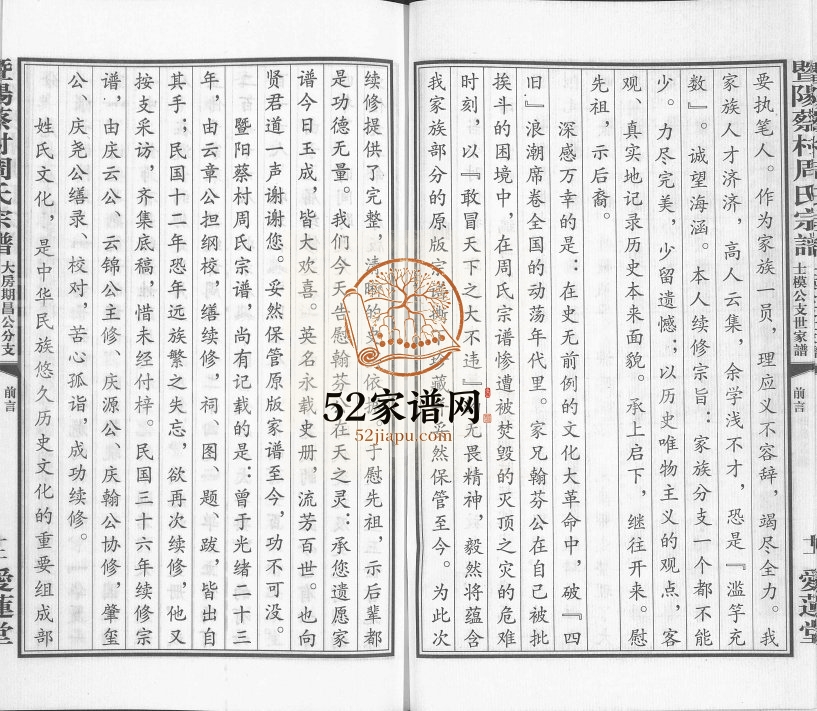 要执笔人。作为家族一员，理应义不容辞，竭尽全力。我
家族人才济济，高人云集，余学浅不才，恐是『滥竽充
数』。诚望海涵。本人续修宗旨：家族分支一个都不能
少。力尽完美，少留遗憾；以历史唯物主义的观点，客
观、真实地记录历史本来面貌。承上启下，继往开来。慰
先祖，示后裔。
深感万幸的是：在史无前例的文化大革命中，破『四
旧』浪潮席卷全国的动荡年代里。家兄翰芬公在自己被批
挨斗的困境中，在周氏宗谱惨遭被焚毁的灭顶之灾的危难
时刻，以『敢冒天下之大不违』 无畏精神，毅然将蕴含
我家族部分的原版宗谱 珍藏 妥然保管至今。为此次
暨陽蔡村周氏宗譜
士模公支世家譜
前言
愛蓮堂
续修提供了完整，清晰的史 依 于慰先祖，示后辈都
是功德无量。我们今天告慰翰芬 在天之灵：承您遗愿家
谱今日玉成，皆大欢喜。英名永载史册，流芳百世。也向
贤君道一声谢谢您。妥然保管原版家谱至今，功不可没。
暨阳蔡村周氏宗谱，尚有记载的是：曾于光绪二十三
年，由云章公担纲校，缮续修，祠、图、题、跋，皆出自
其手；民国十二年恐年远族繁之失忘，欲再次续修，他又
按支采访，齐集底稿，惜未经付梓。民国三十六年续修宗
谱，由庆云公、云锦公主修、庆源公、庆翰公协修，肇玺
公、庆尧公缮录、校对，苦心孤诣，成功续修。
姓氏文化，是中华民族悠久历史文化的重要组成部
暨陽蔡村周氏宗譜
大房期昌公分支
前言
愛蓮堂
52家谱网
52jiapu.com